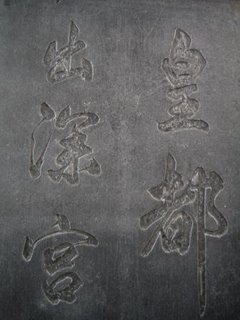 皇都
出深宫